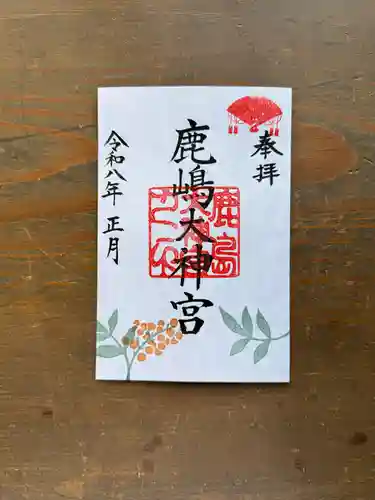 奉拝
鹿嶋大神宮
令和八年 正月